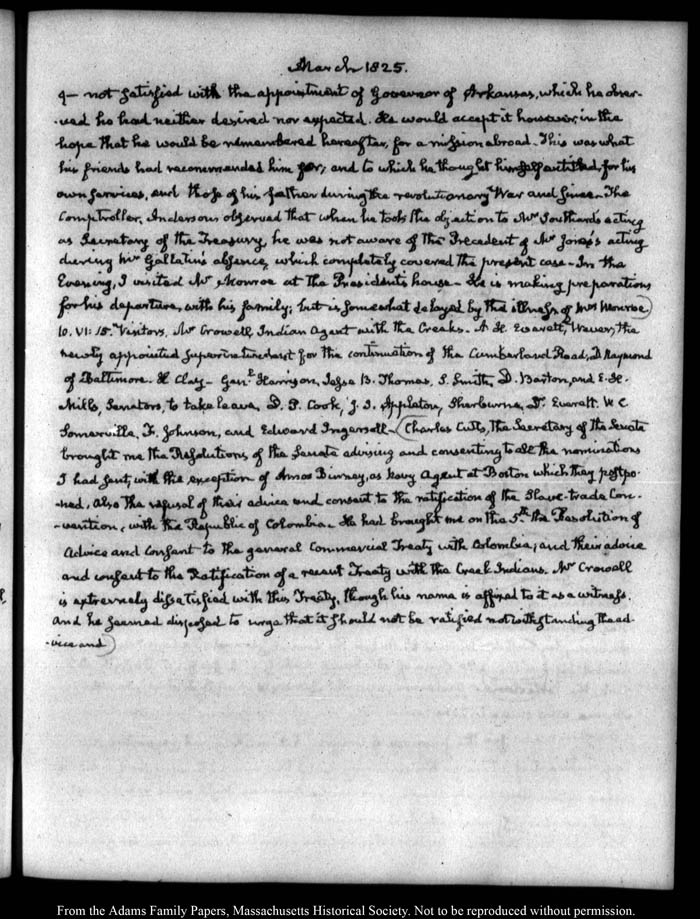 March 1825.
9— not satisfied with the appointment of Governor of Arkansas, which he obser-
-ved he had neither desired nor expected. He would accept it however, in the
hope that he would be remembered hereafter, for a mission abroad. This was what
his friends had recommended him for, and to which he thought himself entitled, for his
own services, and those of his father during the revolutionary War and since— The
Comptroller, Anderson observed that when he took the objection to Mr Southard's acting
as Secretary of the Treasury, he was not aware of the Precedent of Mr Jones's acting
during Mr Gallatin's absence, which completely covered the present case— In the
Evening, I visited Mr Monroe at the President's house— He is making preparations
for his departure, with his family; but is somewhat delayed by the illness of Mrs Monroe)
10. VI: 15. Visitors, Mr Crowell, Indian Agent with the Creeks. A. H. Everett, Weaver, the
newly appointed Superintendent for the continuation of the Cumberland Road, D Raymond
of Baltimore. H Clay— Genl Harrison, Jesse B. Thomas, S. Smith, D. Barton, and E. H.
Mills, Senators, to take leave, D. P. Cook, J. S. Appleton, Sherburne, Dr Everett. W C
Somerville, F. Johnson, and Edward Ingersoll— (Charles Cutts, the Secretary of the Senate
brought me the Resolutions, of the Senate advising and consenting to all the nominations
I had sent, with the exception of Amos Binney, as Navy Agent at Boston which they postpo-
-ned, also the refusal of their advice and consent to the ratification of the Slave-trade Con-
-vention, with the Republic of Colombia— He had brought me on the 5.th the Resolution of
Advice and Consent to the general Commercial Treaty with Colombia; and their advice
and consent to the Ratification of a recent Treaty with the Creek Indians. Mr Crowell
is extremely dissatisfied with this Treaty, though his name is affixed to it as a witness.
And he seemed disposed to urge that it should not be ratified notwithstanding the ad-
-vice and)
From the Adams Family Papers, Massachusetts Historical Society. Not to be reproduced without permission.